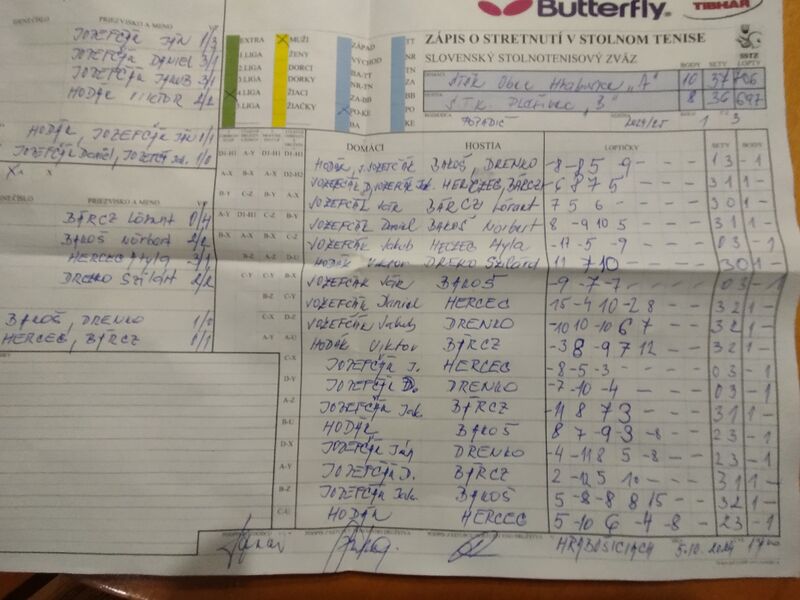 Butterfly
TIBHAR
ZÁPIS O STRETNUTÍ V STOLNOM TENISE
SLOVENSKÝ STOLNOTENISOVÝ ZVÄZ
SSTZ
BODY SETY LOPTY
DOMÁCI STOK Obec Hrabušice "A" 10 37 706
HOSTIA S.T.K. Plešivec "B" 8 36 697
2024/25 1 3
PRIEZVISKO A MENO
JOZEFČÁK JÁN 1/3
JOZEFČÁK DANIEL 3/1
JOZEFČÁK JAKUB 3/1
HODÁK VIKTOR 2/2
HODÁK, JOZEFČÁK JÁN 0/1
JOZEFČÁK Daniel, JOZEFČÁK Jak. 1/0
PRIEZVISKO A MENO
BÁRCZ Lórant 0/4
BAKOŠ Norbert 2/2
HERCEG Hyla 3/1
DRENKO Szilárd 2/2
BAKOŠ, DRENKO 1/0
HERCEG, BÁRCZ 0/1
EXTRA MUŽI ZÁPAD TT
1.LIGA ŽENY VÝCHOD NR
2.LIGA DORCI BA-TT TN
3.LIGA DORKY NR-TN ZA
4.LIGA ŽIACI ZA-BB BB
5.LIGA ŽIAČKY PO-KE PO
BA KE
DOMÁCI HOSTIA LOPTIČKY SETY BODY
HODÁK, J. JOZEFČÁK BAKOŠ, DRENKO -8 -8 5 -9 - - - 1 3 - 1
JOZEFČÁK D, JOZEFČÁK Jak. HERCZEG, BÁRCZ -6 8 7 5 - - - 3 1 1 -
JOZEFČÁK Ján BÁRCZ Lórant 7 5 6 - - - - 3 0 1 -
JOZEFČÁK Daniel BAKOŠ Norbert 8 -9 10 5 - - - 3 1 1 -
JOZEFČÁK Jakub HERCZEG Hyla -17 -5 -9 - - - - 0 3 - 1
HODÁK Viktor DRENKO Szilárd 11 7 10 - - - - 3 0 1 -
JOZEFČÁK Ján BAKOŠ -9 -7 -7 - - - - 0 3 - 1
JOZEFČÁK Daniel HERCEG 15 -4 10 -2 8 - - 3 2 1 -
JOZEFČÁK Jakub DRENKO -10 10 -10 6 7 - - 3 2 1 -
HODÁK Viktor BÁRCZ -3 8 -9 7 12 - - 3 2 1 -
JOZEFČÁK J. HERCEG -8 -5 -3 - - - - 0 3 - 1
JOZEFČÁK D. DRENKO -7 -10 -4 - - - - 0 3 - 1
JOZEFČÁK Jak. BÁRCZ -11 8 7 3 - - - 3 1 1 -
HODÁK BAKOŠ 8 7 -9 -3 -8 - - 2 3 - 1
JOZEFČÁK Ján DRENKO -4 -11 8 5 -8 - - 2 3 - 1
JOZEFČÁK D. BÁRCZ 2 -12 5 10 - - - 3 1 1 -
JOZEFČÁK Jak. BAKOŠ 5 -8 -8 8 15 - - 3 2 1 -
HODÁK HERCEG 5 -10 6 -4 -8 - - 2 3 - 1
HRABUŠICIACH 5.10.2024